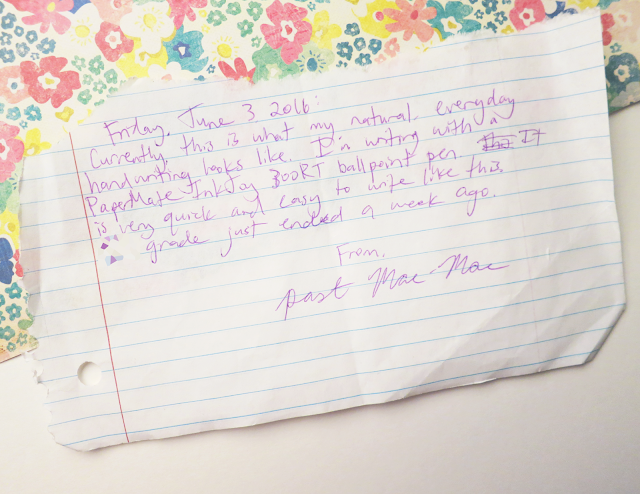 Friday, June 3 2016:
Currently, this is what my natural, everyday
handwriting looks like. I'm writing with a
PaperMate InkJoy 300RT ballpoint pen It
is very quick and easy to write like this.
grade just ended a week ago.
From,
past Mae-Mae